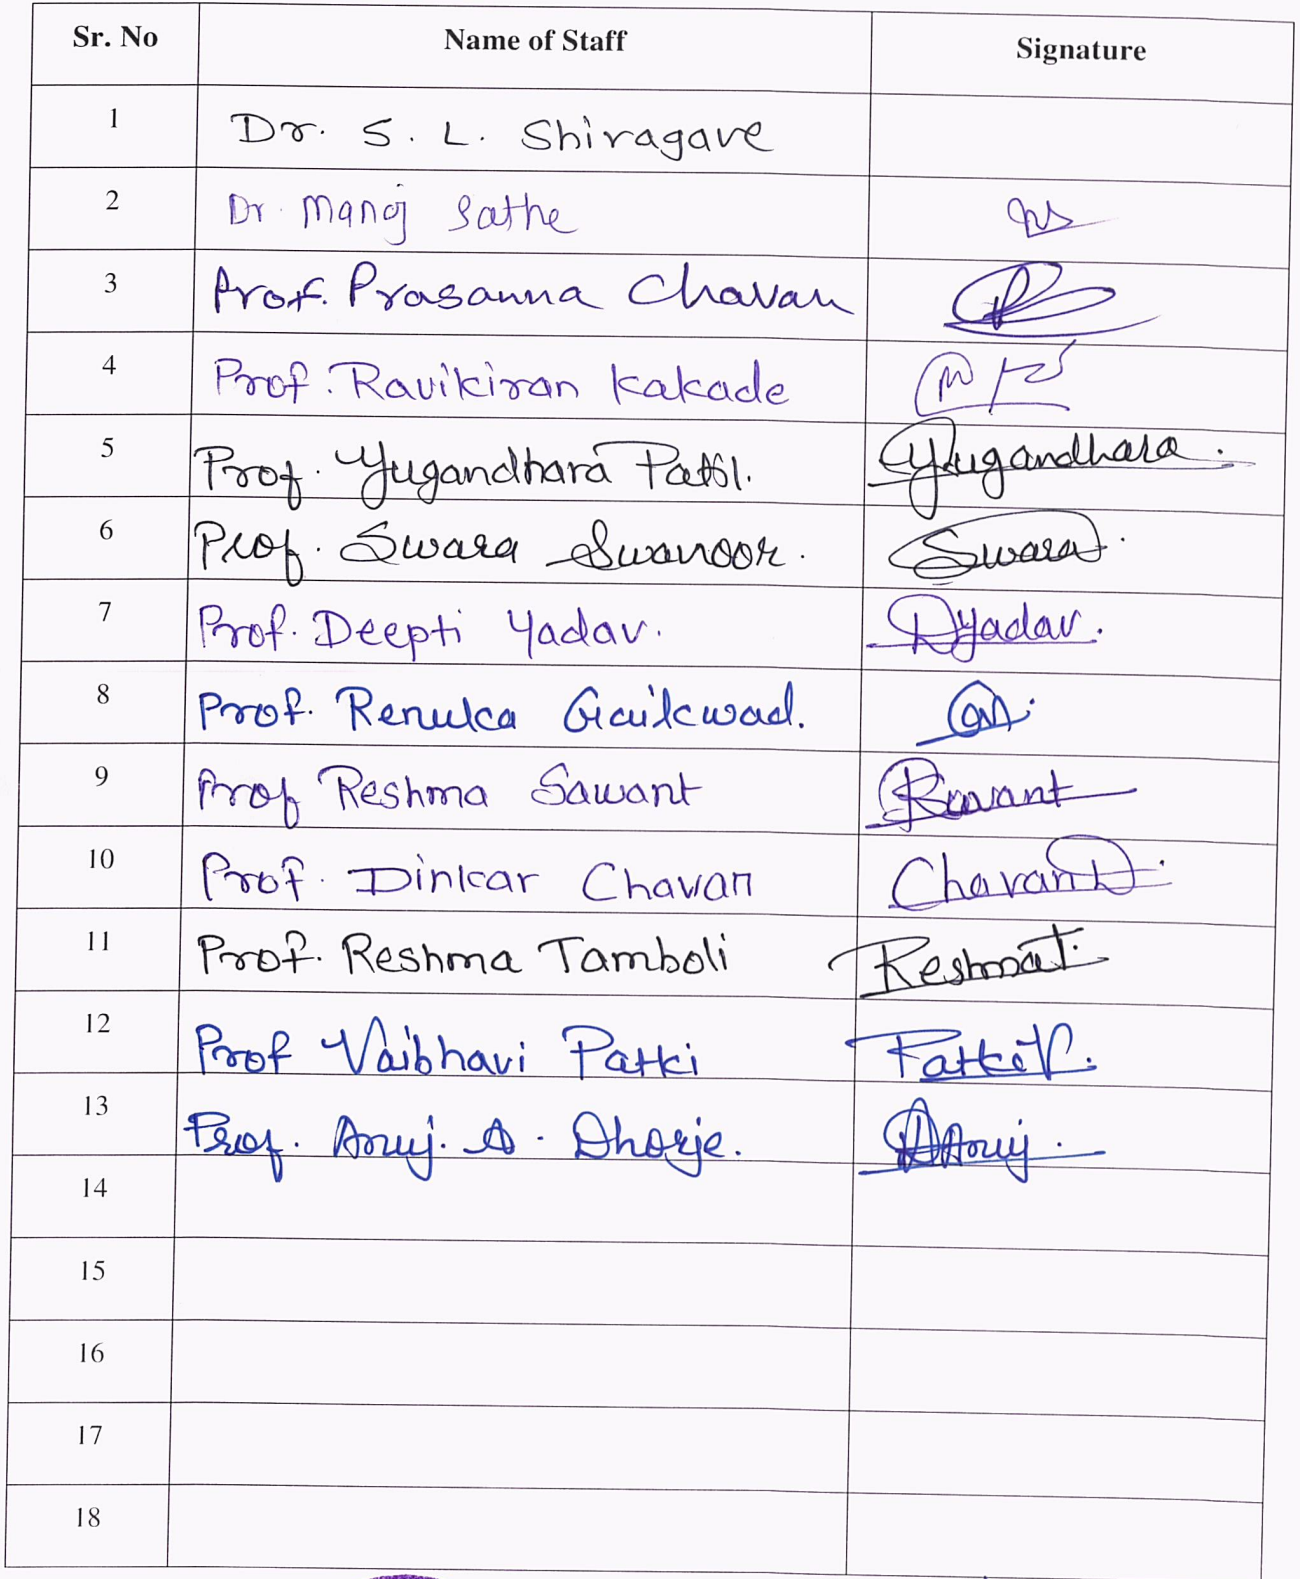 Sr. No Name of Staff Signature
1 Dr. S. L. Shiragave
2 Dr. Manoj Sathe
3 Prof. Prasanna Chavan
4 Prof. Ravikiran Kakade
5 Prof. Yugandhara Patil. Yugandhara.
6 Prof. Swara Swanoor. Swara.
7 Prof. Deepti Yadav. DYadav.
8 Prof. Renuka Gaikwad.
9 Prof Reshma Sawant
10 Prof. Dinkar Chavan Chavan D.
11 Prof. Reshma Tamboli Reshma T.
12 Prof Vaibhavi Patki Patki V.
13 Prof. Anuj. A. Dhorje. Anuj.
14
15
16
17
18